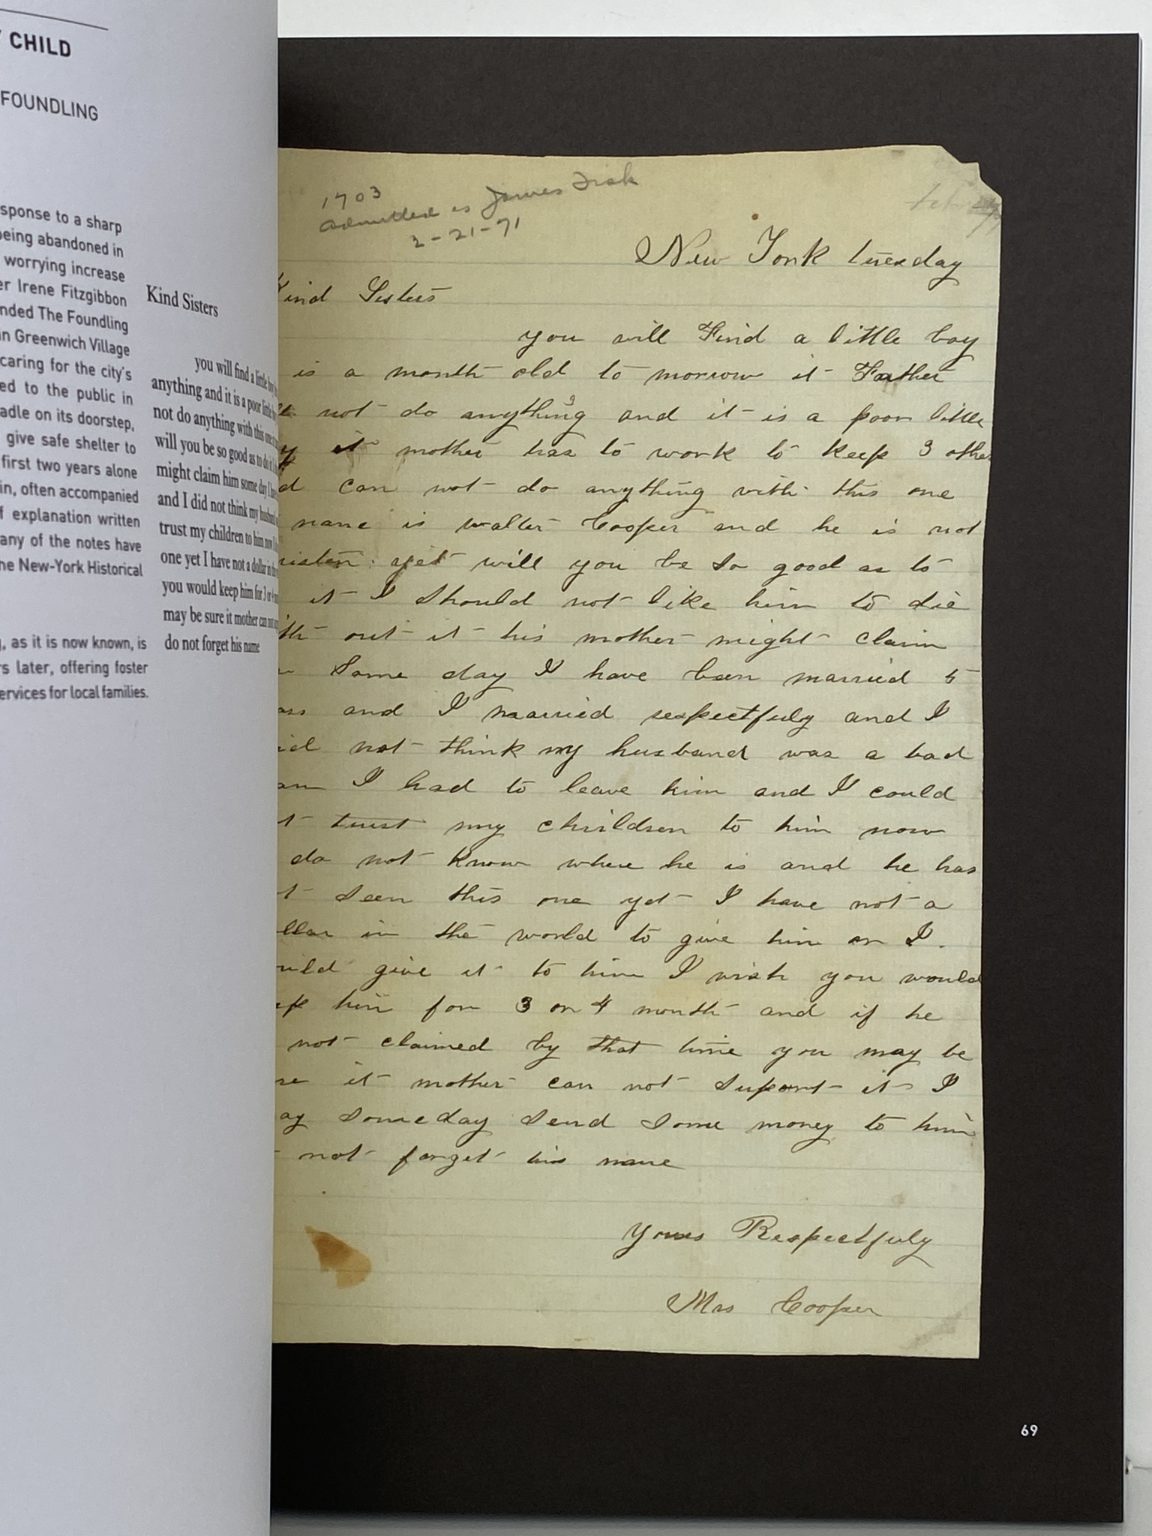 CHILD
FOUNDLING
sponse to a sharp
being abandoned in
worrying increase
er Irene Fitzgibbon
nded The Foundling
n Greenwich Village
caring for the city's
ed to the public in
adle on its doorstep,
give safe shelter to
first two years alone
in, often accompanied
f explanation written
any of the notes have
he New-York Historical
, as it is now known, is
rs later, offering foster
ervices for local families.
Kind Sisters
you will find a little boy
anything and it is a poor little
not do anything with this one
will you be so good as to do it
might claim him some day I
and I did not think my husband
trust my children to him now
one yet I have not a dollar in the
you would keep him for 3 or 4
may be sure it mother can not
do not forget his name
1703
Admitted as James Fisk
2-21-71
New York tuesday
Kind Sisters
you will Find a little boy
is a month old to morrow it Father
not do anything and it is a poor little
y it mother has to work to keep 3 other
d can not do anything with this one
name is walter Cooper and he is not
risten yet will you be So good as to
it I Should not like him to die
ith out it his mother might claim
Some day I have been married 5
ars and I married respectfuly and I
id not think my husband was a bad
an I had to leave him and I could
t trust my children to him now
do not know where he is and he has
t Seen this one yet I have not a
ollar in the world to give him or I
uld give it to him I wish you would
ep him for 3 or 4 month and if he
not claimed by that time you may be
re it mother can not Suport it I
ay Someday Send Some money to him
not forget his name
Yours Respectfuly
Mrs Cooper
69